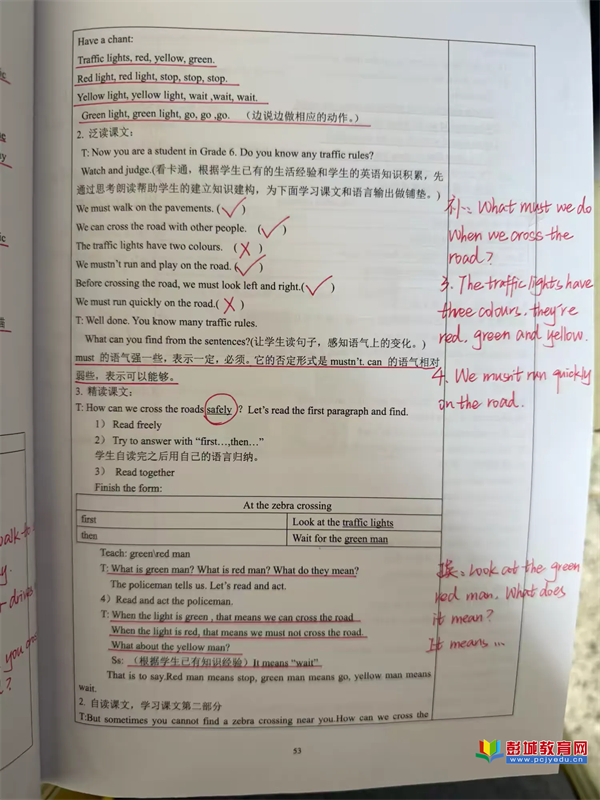 Have a chant:
Traffic lights, red, yellow, green.
Red light, red light, stop, stop, stop.
Yellow light, yellow light, wait ,wait, wait.
Green light, green light, go, go ,go. （边说边做相应的动作。）
2. 泛读课文：
T: Now you are a student in Grade 6. Do you know any traffic rules?
Watch and judge.(看卡通，根据学生已有的生活经验和学生的英语知识积累，先
通过思考朗读帮助学生的建立知识建构，为下面学习课文和语言输出做铺垫。)
We must walk on the pavements. (✓)
We can cross the road with other people. (✓)
The traffic lights have two colours. (X)
We mustn't run and play on the road.(✓)
Before crossing the road, we must look left and right.(✓)
We must run quickly on the road.( X )
T: Well done. You know many traffic rules.
What can you find from the sentences?(让学生读句子，感知语气上的变化。)
must 的语气强一些，表示一定，必须。它的否定形式是 mustn't. can 的语气相对
弱些，表示可以能够。
3. 精读课文：
T: How can we cross the roads safely ？Let's read the first paragraph and find.
1） Read freely
2） Try to answer with “first…,then…”
学生自读完之后用自己的语言归纳。
3） Read together
Finish the form:
At the zebra crossing
first Look at the traffic lights
then Wait for the green man
Teach: green\red man
T: What is green man? What is red man? What do they mean?
The policeman tells us. Let's read and act.
4）Read and act the policeman.
T: When the light is green , that means we can cross the road
When the light is red, that means we must not cross the road.
What about the yellow man?
Ss:（根据学生已有知识经验）It means “wait”.
That is to say.Red man means stop, green man means go, yellow man means
wait.
2. 自读课文，学习课文第二部分
T:But sometimes you cannot find a zebra crossing near you.How can we cross the
53
补: What must we do
when we cross the
road?
3. The traffic lights have
three colours. they're
red, green and yellow.
4. We musn't run quickly
on the road.
Look at the green
red man. What does
it mean?
It means ...
彭城教育网
www.pcjyedu.cn